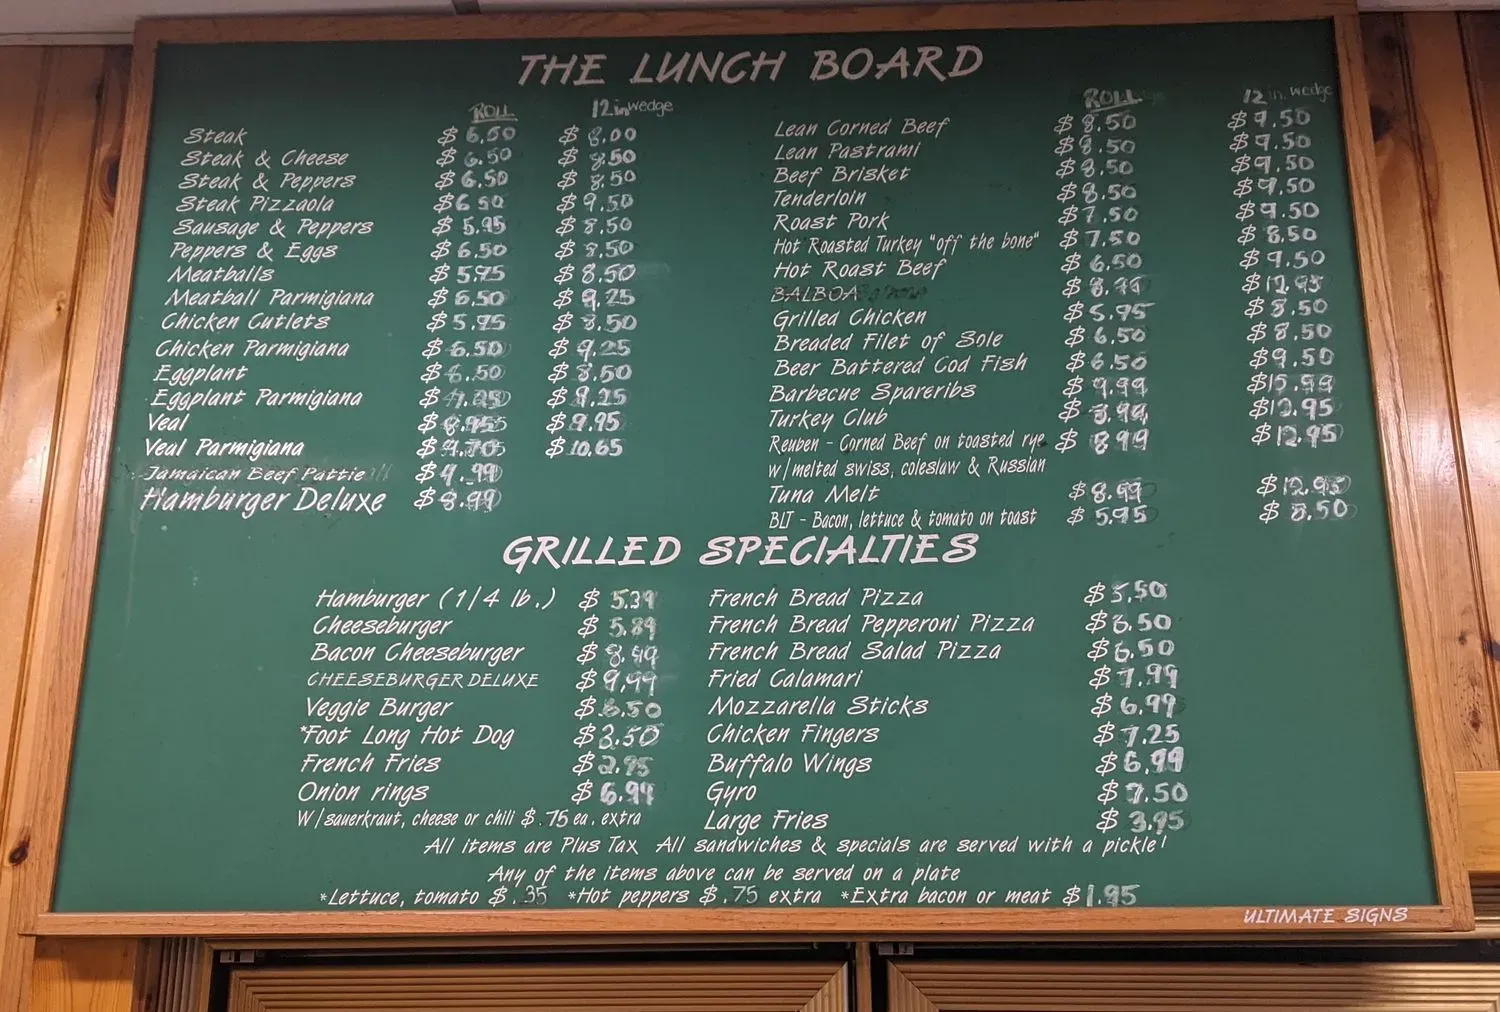 THE LUNCH BOARD
ROLL 12 in wedge
Steak $ 6.50 $ 8.00
Steak & Cheese $ 6.50 $ 8.50
Steak & Peppers $ 6.50 $ 8.50
Steak Pizzaola $ 6 50 $ 9.50
Sausage & Peppers $ 5.95 $ 8.50
Peppers & Eggs $ 6.50 $ 8.50
Meatballs $ 5.95 $ 8.50
Meatball Parmigiana $ 6.50 $ 9.25
Chicken Cutlets $ 5.95 $ 8.50
Chicken Parmigiana $ 6.50 $ 9.25
Eggplant $ 6.50 $ 8.50
Eggplant Parmigiana $ $ 9.25
Veal $ 8.95 $ 9.95
Veal Parmigiana $ $ 10.65
Jamaican Beef Pattie $ 4.99
Hamburger Deluxe $ 8.99
ROLL 12 in. wedge
Lean Corned Beef $ 8.50 $ 9.50
Lean Pastrami $ 8.50 $ 9.50
Beef Brisket $ 8.50 $ 9.50
Tenderloin $ 8.50 $ 9.50
Roast Pork $ 7.50 $ 9.50
Hot Roasted Turkey "off the bone" $ 7.50 $ 8.50
Hot Roast Beef $ 6.50 $ 9.50
BALBOA $ 8.99 $ 12.95
Grilled Chicken $ 5.95 $ 8.50
Breaded Filet of Sole $ 6.50 $ 8.50
Beer Battered Cod Fish $ 6.50 $ 9.50
Barbecue Spareribs $ 9.99 $ 15.99
Turkey Club $ 8.99 $ 12.95
Reuben - Corned Beef on toasted rye $ 8.99 $ 12.95
w/melted swiss, coleslaw & Russian
Tuna Melt $ 8.99 $ 12.95
BLT - Bacon, lettuce & tomato on toast $ 5.95 $ 8.50
GRILLED SPECIALTIES
Hamburger (1/4 lb.) $ 5.39
Cheeseburger $ 5.89
Bacon Cheeseburger $ 8.49
CHEESEBURGER DELUXE $ 9.99
Veggie Burger $ 6.50
*Foot Long Hot Dog $ 3.50
French Fries $ 2.95
Onion rings $ 6.99
W/sauerkraut, cheese or chili $ .75 ea. extra
French Bread Pizza $ 5.50
French Bread Pepperoni Pizza $ 6.50
French Bread Salad Pizza $ 6.50
Fried Calamari $ 7.99
Mozzarella Sticks $ 6.99
Chicken Fingers $ 7.25
Buffalo Wings $ 6.99
Gyro $ 7.50
Large Fries $ 3.95
All items are Plus Tax All sandwiches & specials are served with a pickle!
Any of the items above can be served on a plate
*Lettuce, tomato $ .35 *Hot peppers $ .75 extra *Extra bacon or meat $ 1.95
ULTIMATE SIGNS